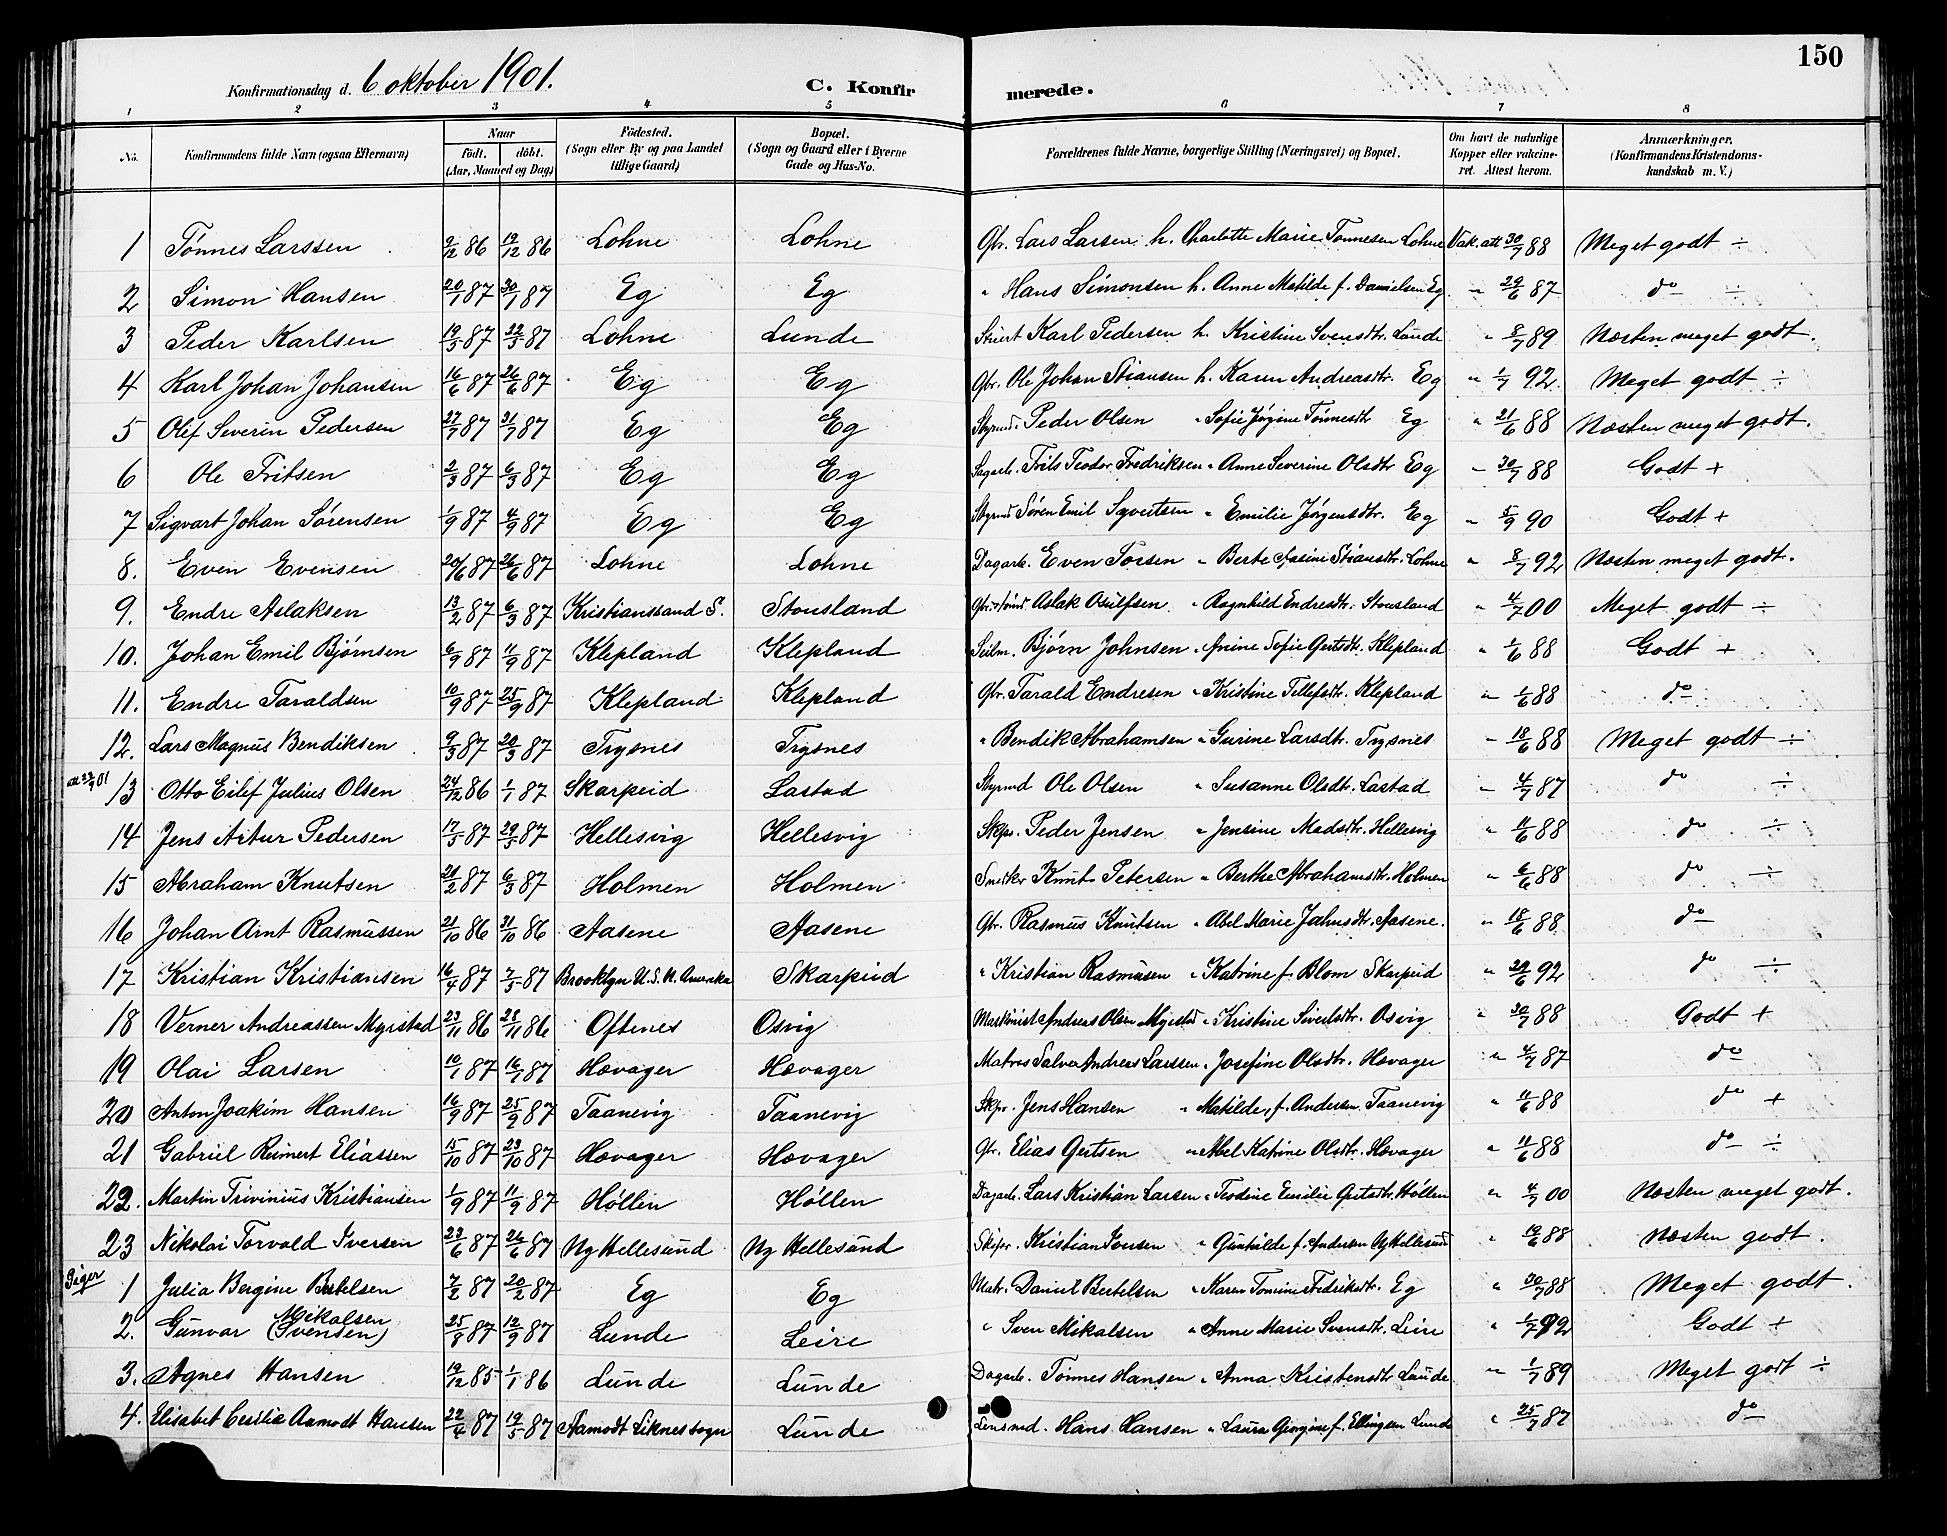 150
Konfirmationsdag d. 6 oktober 1901. C. Konfirmerede.
1 2 3 4 5 6 7 8
No. Konfirmandens fulde Navn (ogsaa Efternavn) Naar födt. döbt. (Aar, Maaned og Dag) Födested. (Sogn eller By og paa Landet tillige Gaard) Bopæl. (Sogn og Gaard eller i Byerne Gade og Hus-No. Forældrenes fulde Navne, borgerlige Stilling (Næringsvei) og Bopæl. Om havt de naturlige Kopper eller vakcineret. Attest herom. Anmærkninger. (Konfirmandens Kristendomskundskab m. V.)
1 Tønnes Larssen 9/12 86 19/12 86 Lohne Lohne Gbr. Lars Larsen h. Charlotte Marie Tønnesen Lohne Vak. att 30/7 88 Meget godt ÷
2 Simon Hansen 20/1 87 30/1 87 Eg Eg " Hans Simonsen h. Anne Matilde f. Danielsen Eg " 29/6 87 do ÷
3 Peder Karlsen 19/3 87 Lohne Lunde Stuert Karl Pedersen h. Kristine Svensdtr. Lunde " 8/7 89 Næsten meget godt.
4 Karl Johan Johansen 16/6 87 26/6 87 Eg Eg Gbr. Ole Johan Stiansen h. Karen Andreasdtr. Eg " 1/7 92. Meget godt ÷
5 Olef Severin Pedersen 27/7 87 31/7 87 Eg Eg Styrmd. Peder Olsen " Sofie Jørgine Tønnesdt Eg " 21/6 88 Næsten meget godt.
6 Ole Fritsen 2/3 87 6/3 87 Eg Eg Sagarb. Frits Teodor Fredriksen " Anne Severine Olsdtr Eg " 30/7 88 Godt +
7 Sigvart Johan Sørensen 1/9 87 4/9 87 Eg Eg Styrmd Søren Emil Syvertsen " Emilie Jørgensdtr. Eg " 5/9 90 Godt +
8. Even Evensen 20/6 87 26/6 87 Lohne Lohne Dagarb. Even Torsen " Berte Aasine Stiansdtr. Lohne " 8/7 92 Næsten meget godt.
9. Endre Aslaksen 13/2 87 6/3 87 Kristianssand S. Stousland Aslak Asulfsen " Ragnhild Endresdtr. Stousland " 4/7 00 Meget godt ÷
10. Johan Emil Bjørnsen 6/9 87 11/9 87 Klepland Klepland Seilm. Bjørn Johnsen " Anine Sofie Gertsdtr. Klepland " 1/6 88 Godt +
11. Endre Taraldsen 10/9 87 25/9 87 Klepland Klepland Gbr. Tarald Endresen " Kristine Tellefsdtr. Klepland " 1/6 88 do
12. Lars Magnus Bendiksen 9/3 87 20/3 87 Trysnes Trysnes " Bendik Abrahamsen " Gurine Larsdtr. Trysnes " 18/6 88 Meget godt ÷
13 Otto Eilef Julius Olsen 24/12 86 1/1 87 Skarpeid Lastad Styrmd Ole Olsen " Susanne Olsdtr. Lastad " 4/7 87 do ÷
14 Jens Artur Pedersen 17/5 87 29/5 87 Hellesvig Hellesvig Skpr. Peder Jensen " Jensine Madsdtr. Hellesvig " 11/6 88 do ÷
15 Abraham Knutsen 20/2 87 6/3 87 Holmen Holmen Snedker Knut Petersen " Berthe Abrahamsdtr. Holmen " 6/6 88 do ÷
16 Johan Arnt Rasmussen 21/10 86 31/10 86 Aasene Aasene Gbr. Rasmus Knutsen " Abel Marie Jahnsdtr. Aasene. " 18/6 88 do
17 Kristian Kristiansen 16/4 87 7/5 87 Brooklyn U. S. N. Amerika Skarpeid " Kristian Rasmusen " Katrine f. Blom Skarpeid " 29/6 92 do ÷
18 Verner Andreassen Myrstad 23/11 86 28/11 86 Oftenes Osvig Maskinist Andreas Olsen Myrstad " Kristine Sivertsdtr. Osvig " 30/7 88 Godt +
19 Olai Larsen 10/1 87 16/1 87 Hævager Hævager Matros Salve Andreas Larssen " Josefine Olsdtr. Hævager " 4/7 87 do
20 Anton Joakim Hansen 16/9 87 25/9 87 Taanevig Taanevig Skpr. Jens Hansen " Matilde, f. Andersen Taanevig " 11/6 88 do +
21 Gabriel Reimert Eliassen 15/10 87 23/10 87 Hævager Hævager Gbr. Elias Gertsen " Abel Katrine Olsdtr. Hævager " 11/6 88 do ÷
22. Martin Trivinius Kristiansen 1/9 87 11/9 87 Høllen Høllen Dagarb. Lars Kristian Larsen " Teodine Emilie Gertsdtr. Høllen " 4/7 00 Næsten meget godt.
23 Nikolai Torvald Iversen 23/6 87 26/6 87 Ny Hellesund Ny Hellesund Skipr. Kristian Iversen " Gunhilde f. Andersen Ny Hellesund " 19/6 88 Næsten godt.
Piger
1 Julia Bergine Bertelsen 7/2 87 20/2 87 Eg Eg Matr. Daniel Bertelsen " Karen Tomine Fredriksdtr. Eg " 30/7 88 Meget godt.
2. Gunvor Mikalsen (Svensen) 25/8 87 12/9 87 Lunde Leire " Sven Mikalsen " Anne Marie Svensdtr. Leire " 1/7 92 Godt +
3. Agnes Hansen 19/12 85 1/1 86 Lunde Lunde Dagarb. Tønnes Hansen " Anna Kristensdtr Lunde " 1/7 89 Meget godt ÷
4. Elisabet Cecilie Aamodt Hansen 22/4 87 19/5 87 Aamodt Liknes sogn Lunde Lensmd. Hans Hansen " Laura Georgine f. Ellingsen Lunde " 25/7 87 do